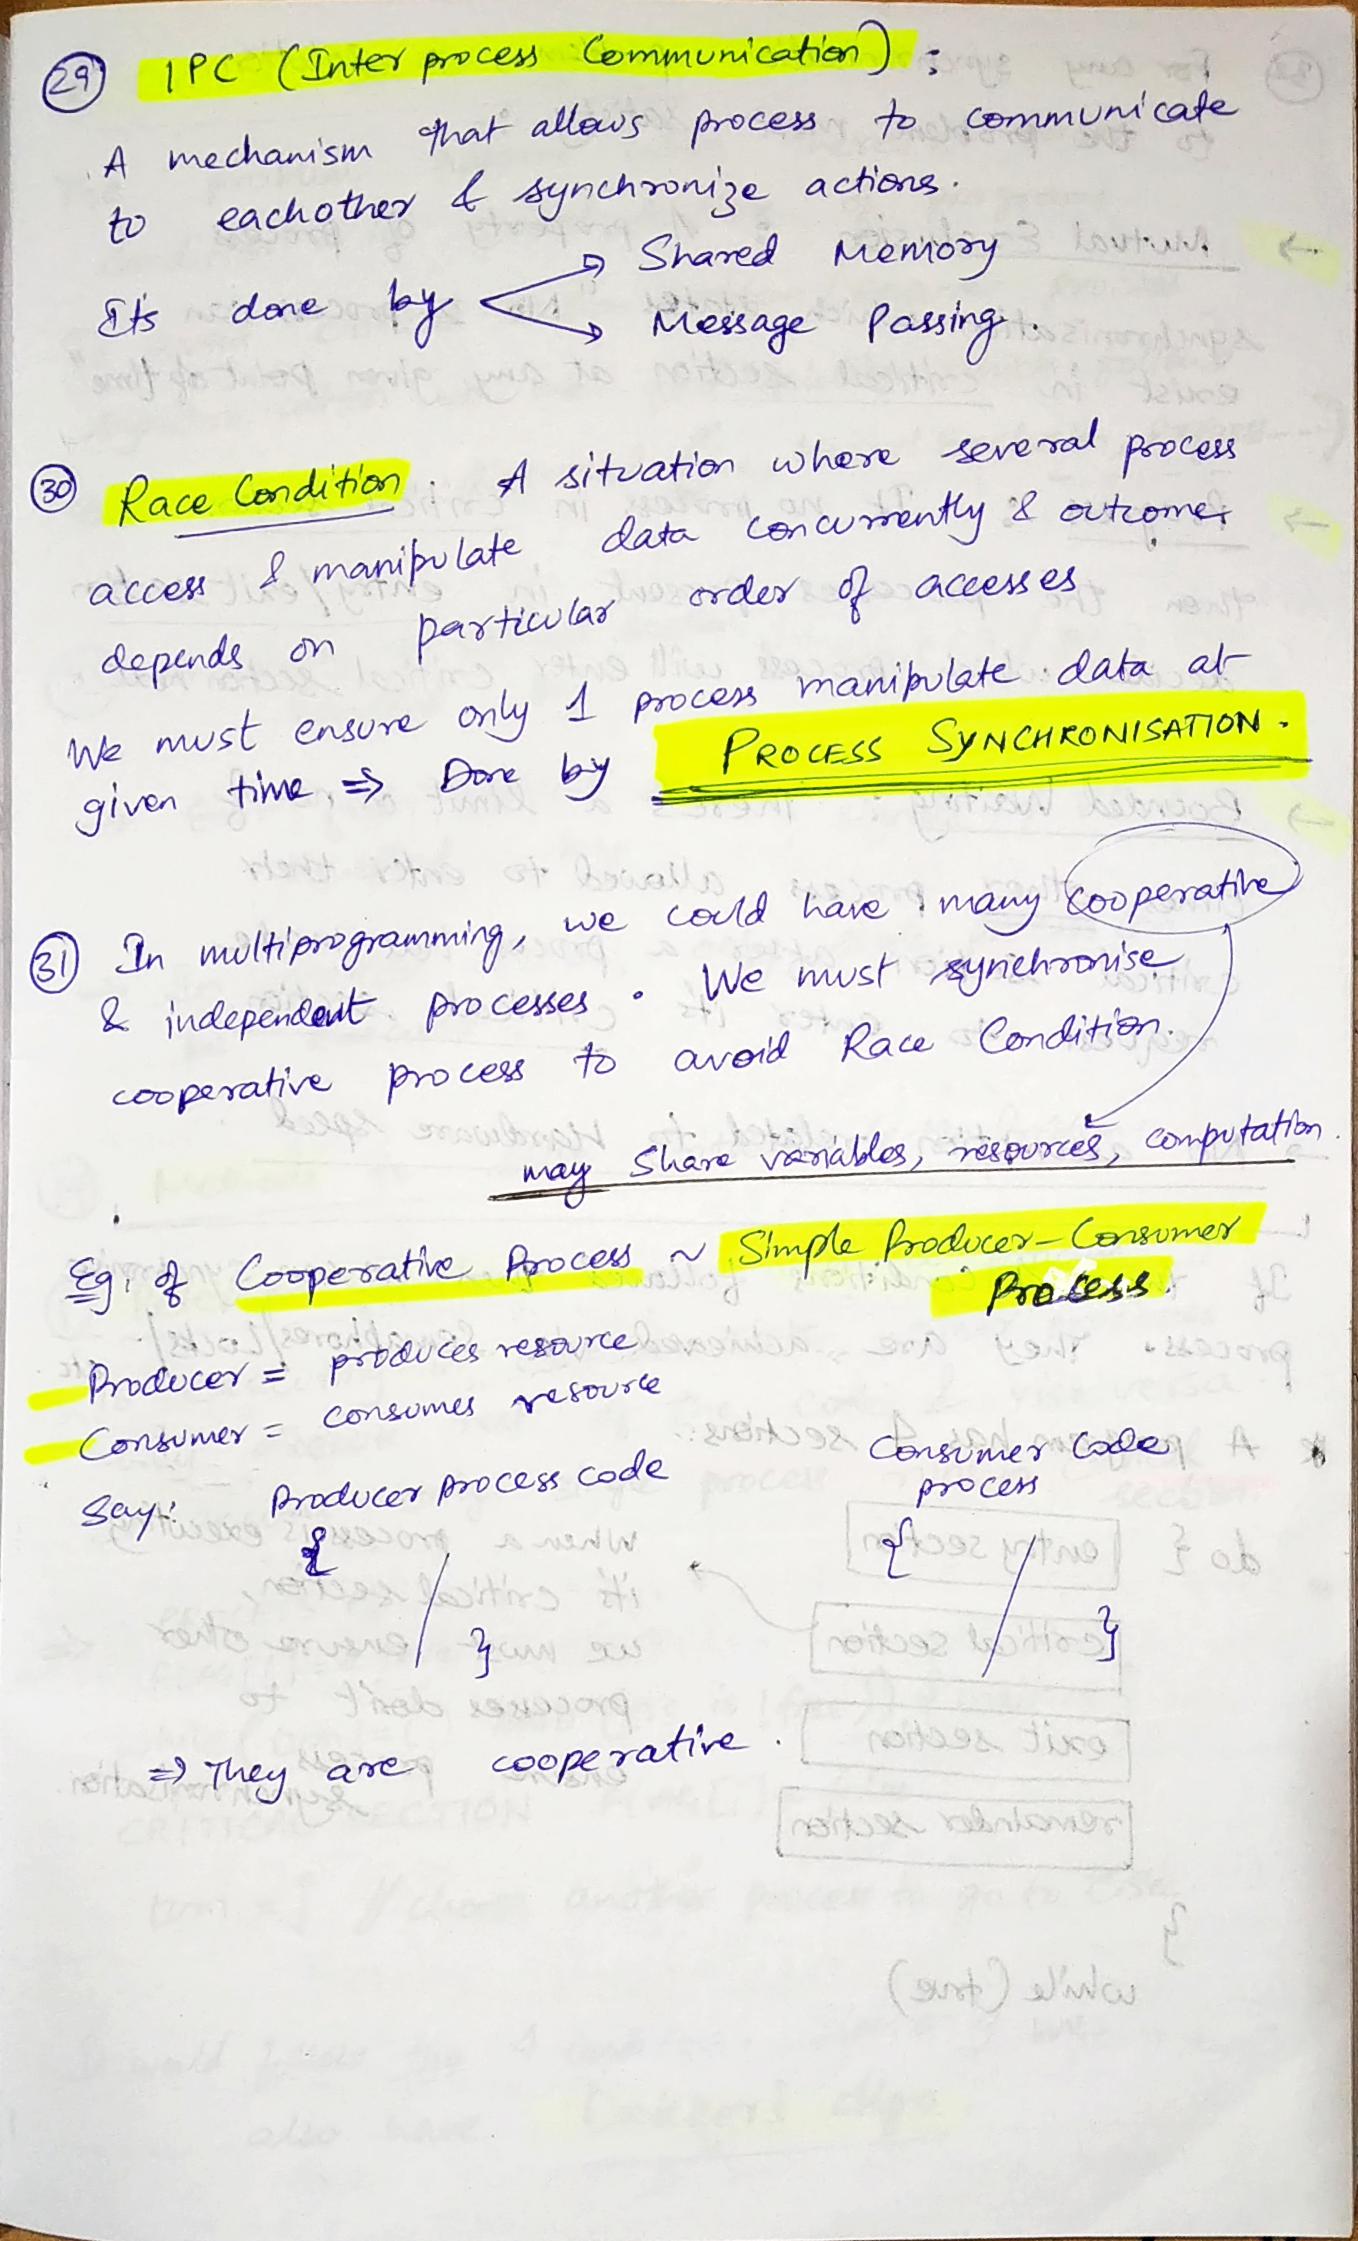 29 IPC (Inter process Communication) :
A mechanism that allows process to communicate
to eachother & synchronize actions.
Its done by → Shared Memory
→ Message Passing.
30 Race Condition. A situation where several process
access & manipulate data concurrently & outcomes
depends on particular order of accesses
We must ensure only 1 process manipulate data at
given time ⇒ Done by PROCESS SYNCHRONISATION.
31 In multiprogramming, we could have many cooperative
& independent processes. We must synchronise
cooperative process to avoid Race Condition.
may share variables, resources, computation.
Eg. of Cooperative Process ~ Simple Producer-Consumer
Process.
Producer = produces resource
Consumer = consumes resource
Say: Producer process code
{ / }
Consumer Code
process
{ / }
⇒ They are cooperative.